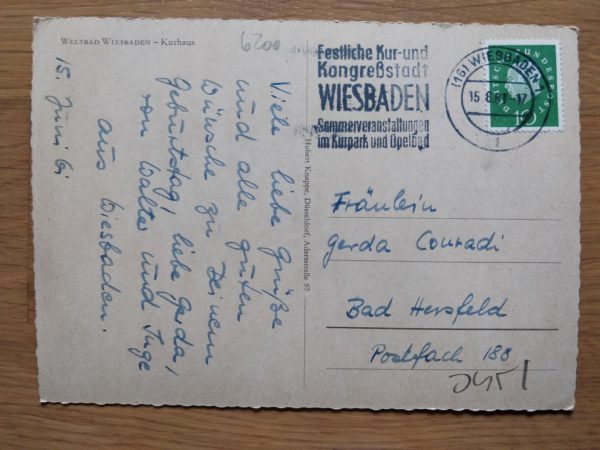 WELTBAD WIESBADEN – Kurhaus
6200
15. Juni 61
Viele liebe Grüße
und alle guten
Wünsche zu Deinem
Geburtstag, liebe Gerda,
von Walter und Inge
aus Wiesbaden.
Hubert Knappe, Düsseldorf, Adersstraße 57
Festliche Kur-und
Kongreßstadt
WIESBADEN
Sommerveranstaltungen
im Kurpark und Opelbad
(16) WIESBADEN 1
15.6.61-17
DEUTSCHE BUNDESPOST
10
Fräulein
Gerda Conradi
Bad Hersfeld
Postfach 188